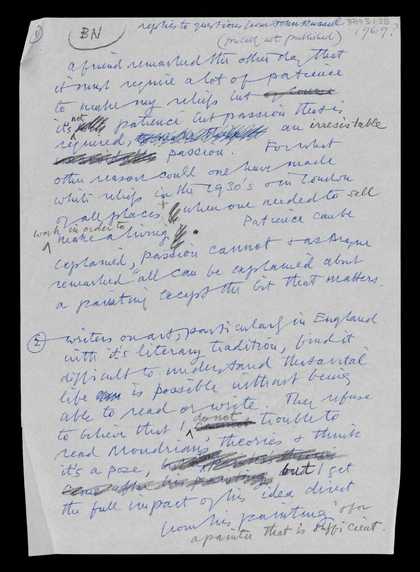 ①
BN
replies to questions from John Russell
(precised, not published)
1967?
a friend remarked the other day that
it must require a lot of patience
to make my reliefs but
it's not patience but passion that is
required, an irresistable
passion. For what
other reason could one have made
white reliefs in the 1930's & in London
of all places when one needed to sell
work in order to
make a living. Patience can be
explained, passion cannot & as Braque
remarked "all can be explained about
a painting except the bit that matters.
②
writers on art, particularly in England
with its literary tradition, find it
difficult to understand that a vital
life is possible without being
able to read or write. They refuse
to believe that I do not trouble to
read Mondrian's theories & think
it's a pose, but I get
the full impact of his idea direct
from his painting & for
a painter that is sufficient.